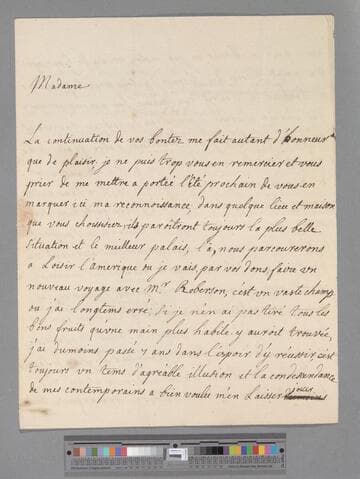 Madame
La continuation de vos bontez me fait autant d'honneur
que de plaisir. je ne puis trop vous en remercier et vous
prier de me mettre a portée l'été prochain de vous en
marquer ici ma reconnoissance, dans quelque lieu et maison
que vous choisissiez, ils paroîtront toujours la plus belle
situation et le meilleur palais, là, nous parcourerons
a Loisir l'Amerique ou je vais, par vos dons, faire un
nouveau voyage avec Mr. Roberson, c'est un vaste champ
ou j'ai longtems erré; si je n'en ai pas tiré tous les
bons fruits qu'une main plus habile y auroit trouvée,
j'ai dumoins passé 7 ans dans l'espoir d'y reussir c'est
toujours un tems d'agreable illusion et la condescendance
de mes contemporains a bien voulu m'en Laisser jouir